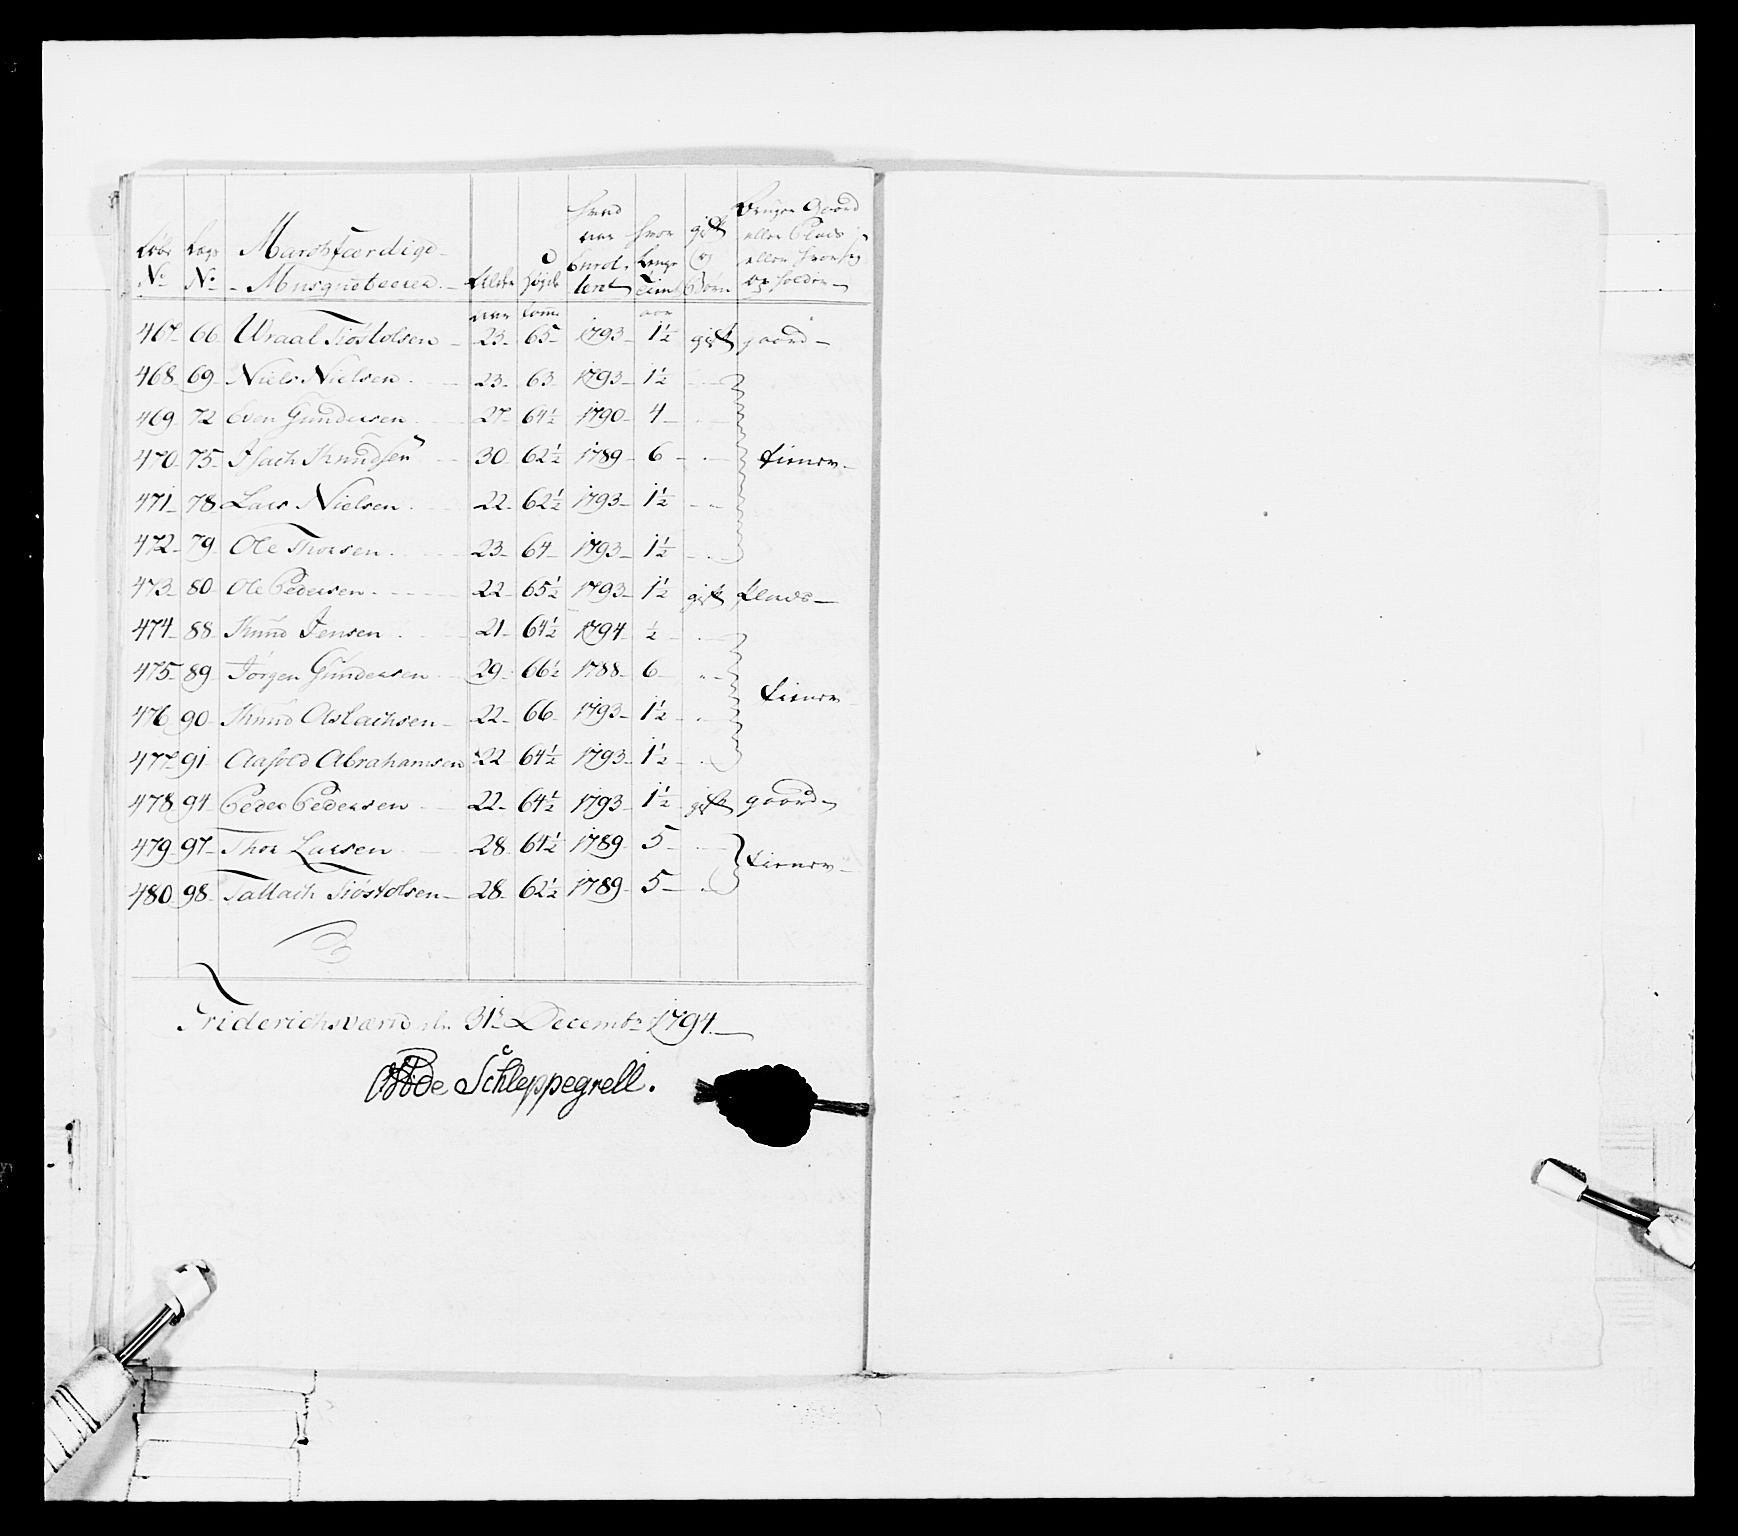 Løbe No Lægs No Marchfærdige Musquetterer Alder Højde hvad aar enrolleret hvor længe tient gift og Børn bruger Gaard eller Plads eller hvor sig opholder
aar tomr aar
467 66 Uraal Tiøstolsen 23 65 1793 1½ gift gaard
468 69 Niels Nielsen 23 63 1793 1½
469 72 Even Gundersen 27 64½ 1790 4
470 75 Isach Knudsen 30 62½ 1789 6 tiener
471 78 Lars Nielsen 22 62½ 1793 1½
472 79 Ole Thorsen 23 64 1793 1½
473 80 Ole Pedersen 22 65½ 1793 1½ gift plads
474 88 Knud Jensen 21 64½ 1794 ½
475 89 Jørgen Gundersen 29 66½ 1788 6 tiener
476 90 Knud Olslachsen 22 66 1793 1½
477 91 Aasold Abrahamsen 22 64½ 1793 1½
478 94 Peder Pedersen 22 64½ 1793 1½ gift gaard
479 97 Thor Larsen 28 61½ 1789 5 tiener
480 98 Tallach Tiøstolsen 28 62½ 1789 5
Friderichsværn d. 31t Decembr 1794.
Schleppegrell.